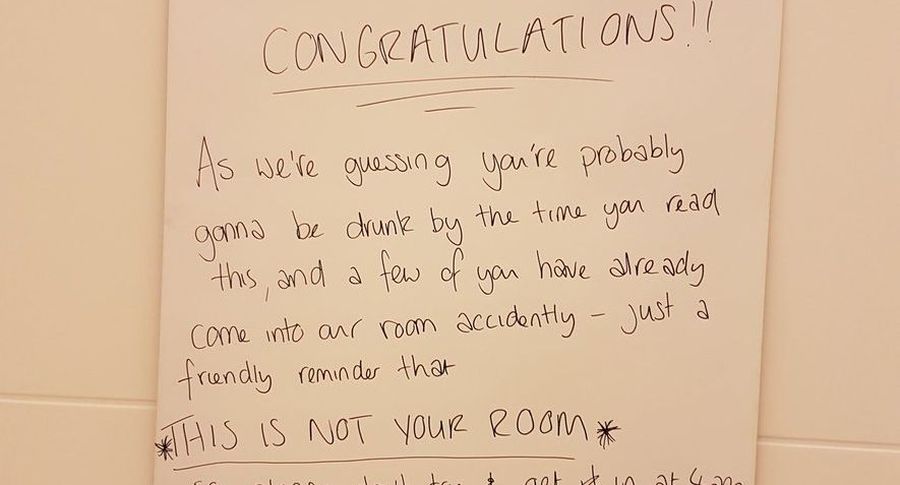 CONGRATULATIONS!!
As we're guessing you're probably
gonna be drunk by the time you read
this, and a few of you have already
come into our room accidently – just a
friendly reminder that
*THIS IS NOT YOUR ROOM*
in at 4am